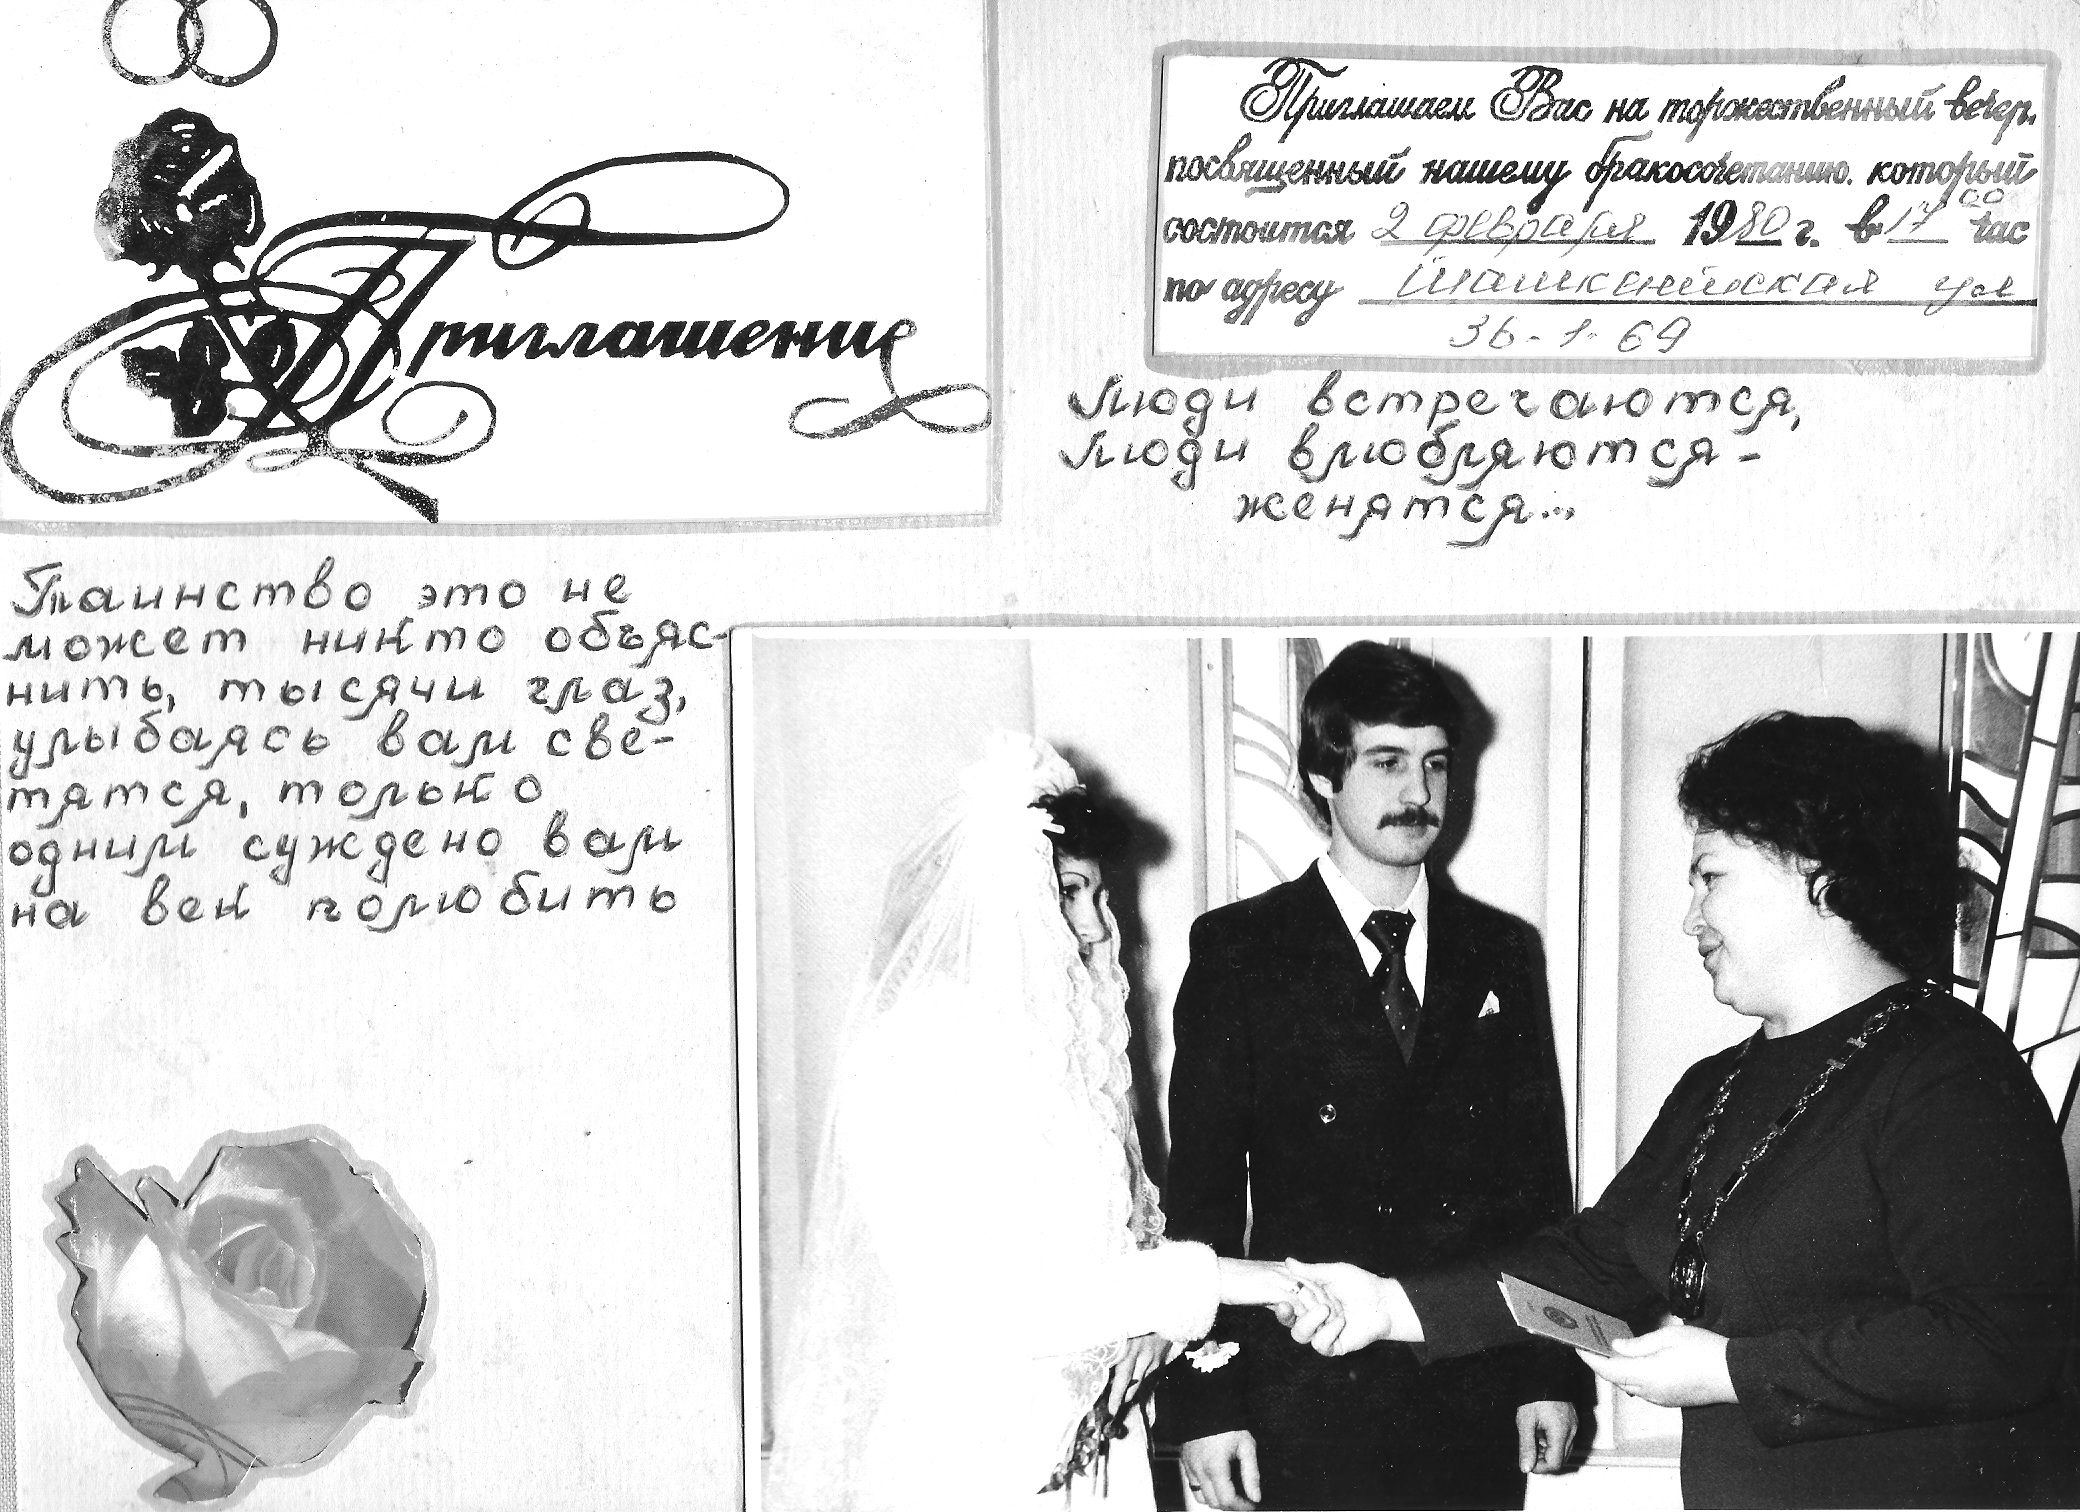 Приглашение
Приглашаем Вас на торжественный вечер,
посвященный нашему бракосочетанию, который
состоится 2 февраля 1980 г. в 17 00 час
по адресу Ташкентская ул
36-1-69
Люди встречаются,
Люди влюбляются -
женятся...
Таинство это не
может никто объяс-
нить, тысячи глаз,
улыбаясь вам све-
тятся, только
одним суждено вам
на век полюбить